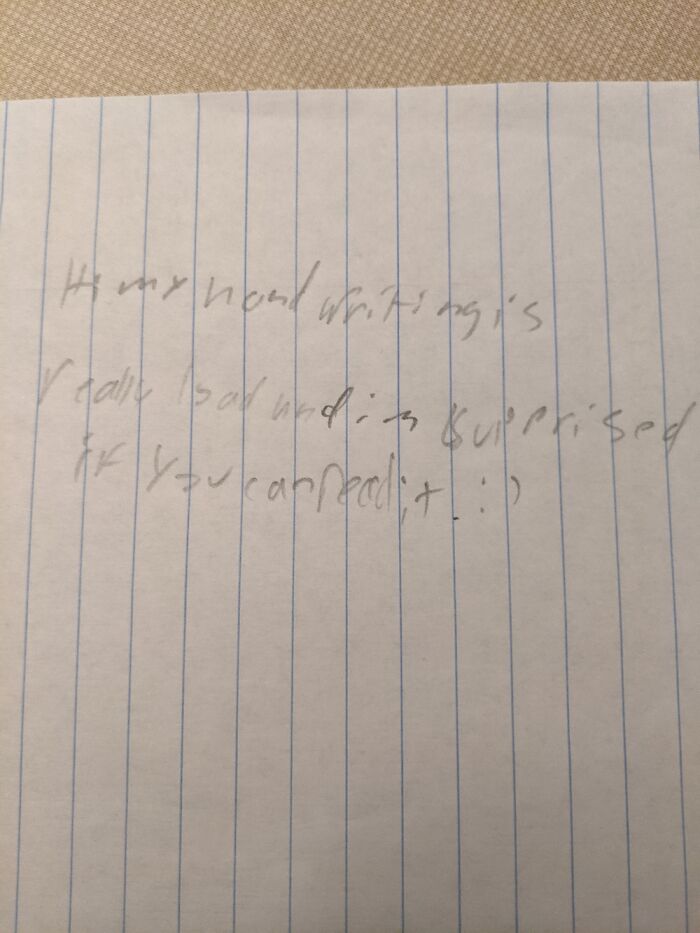 Hi my handwriting is
really bad and im surprised
if you can read it. :)